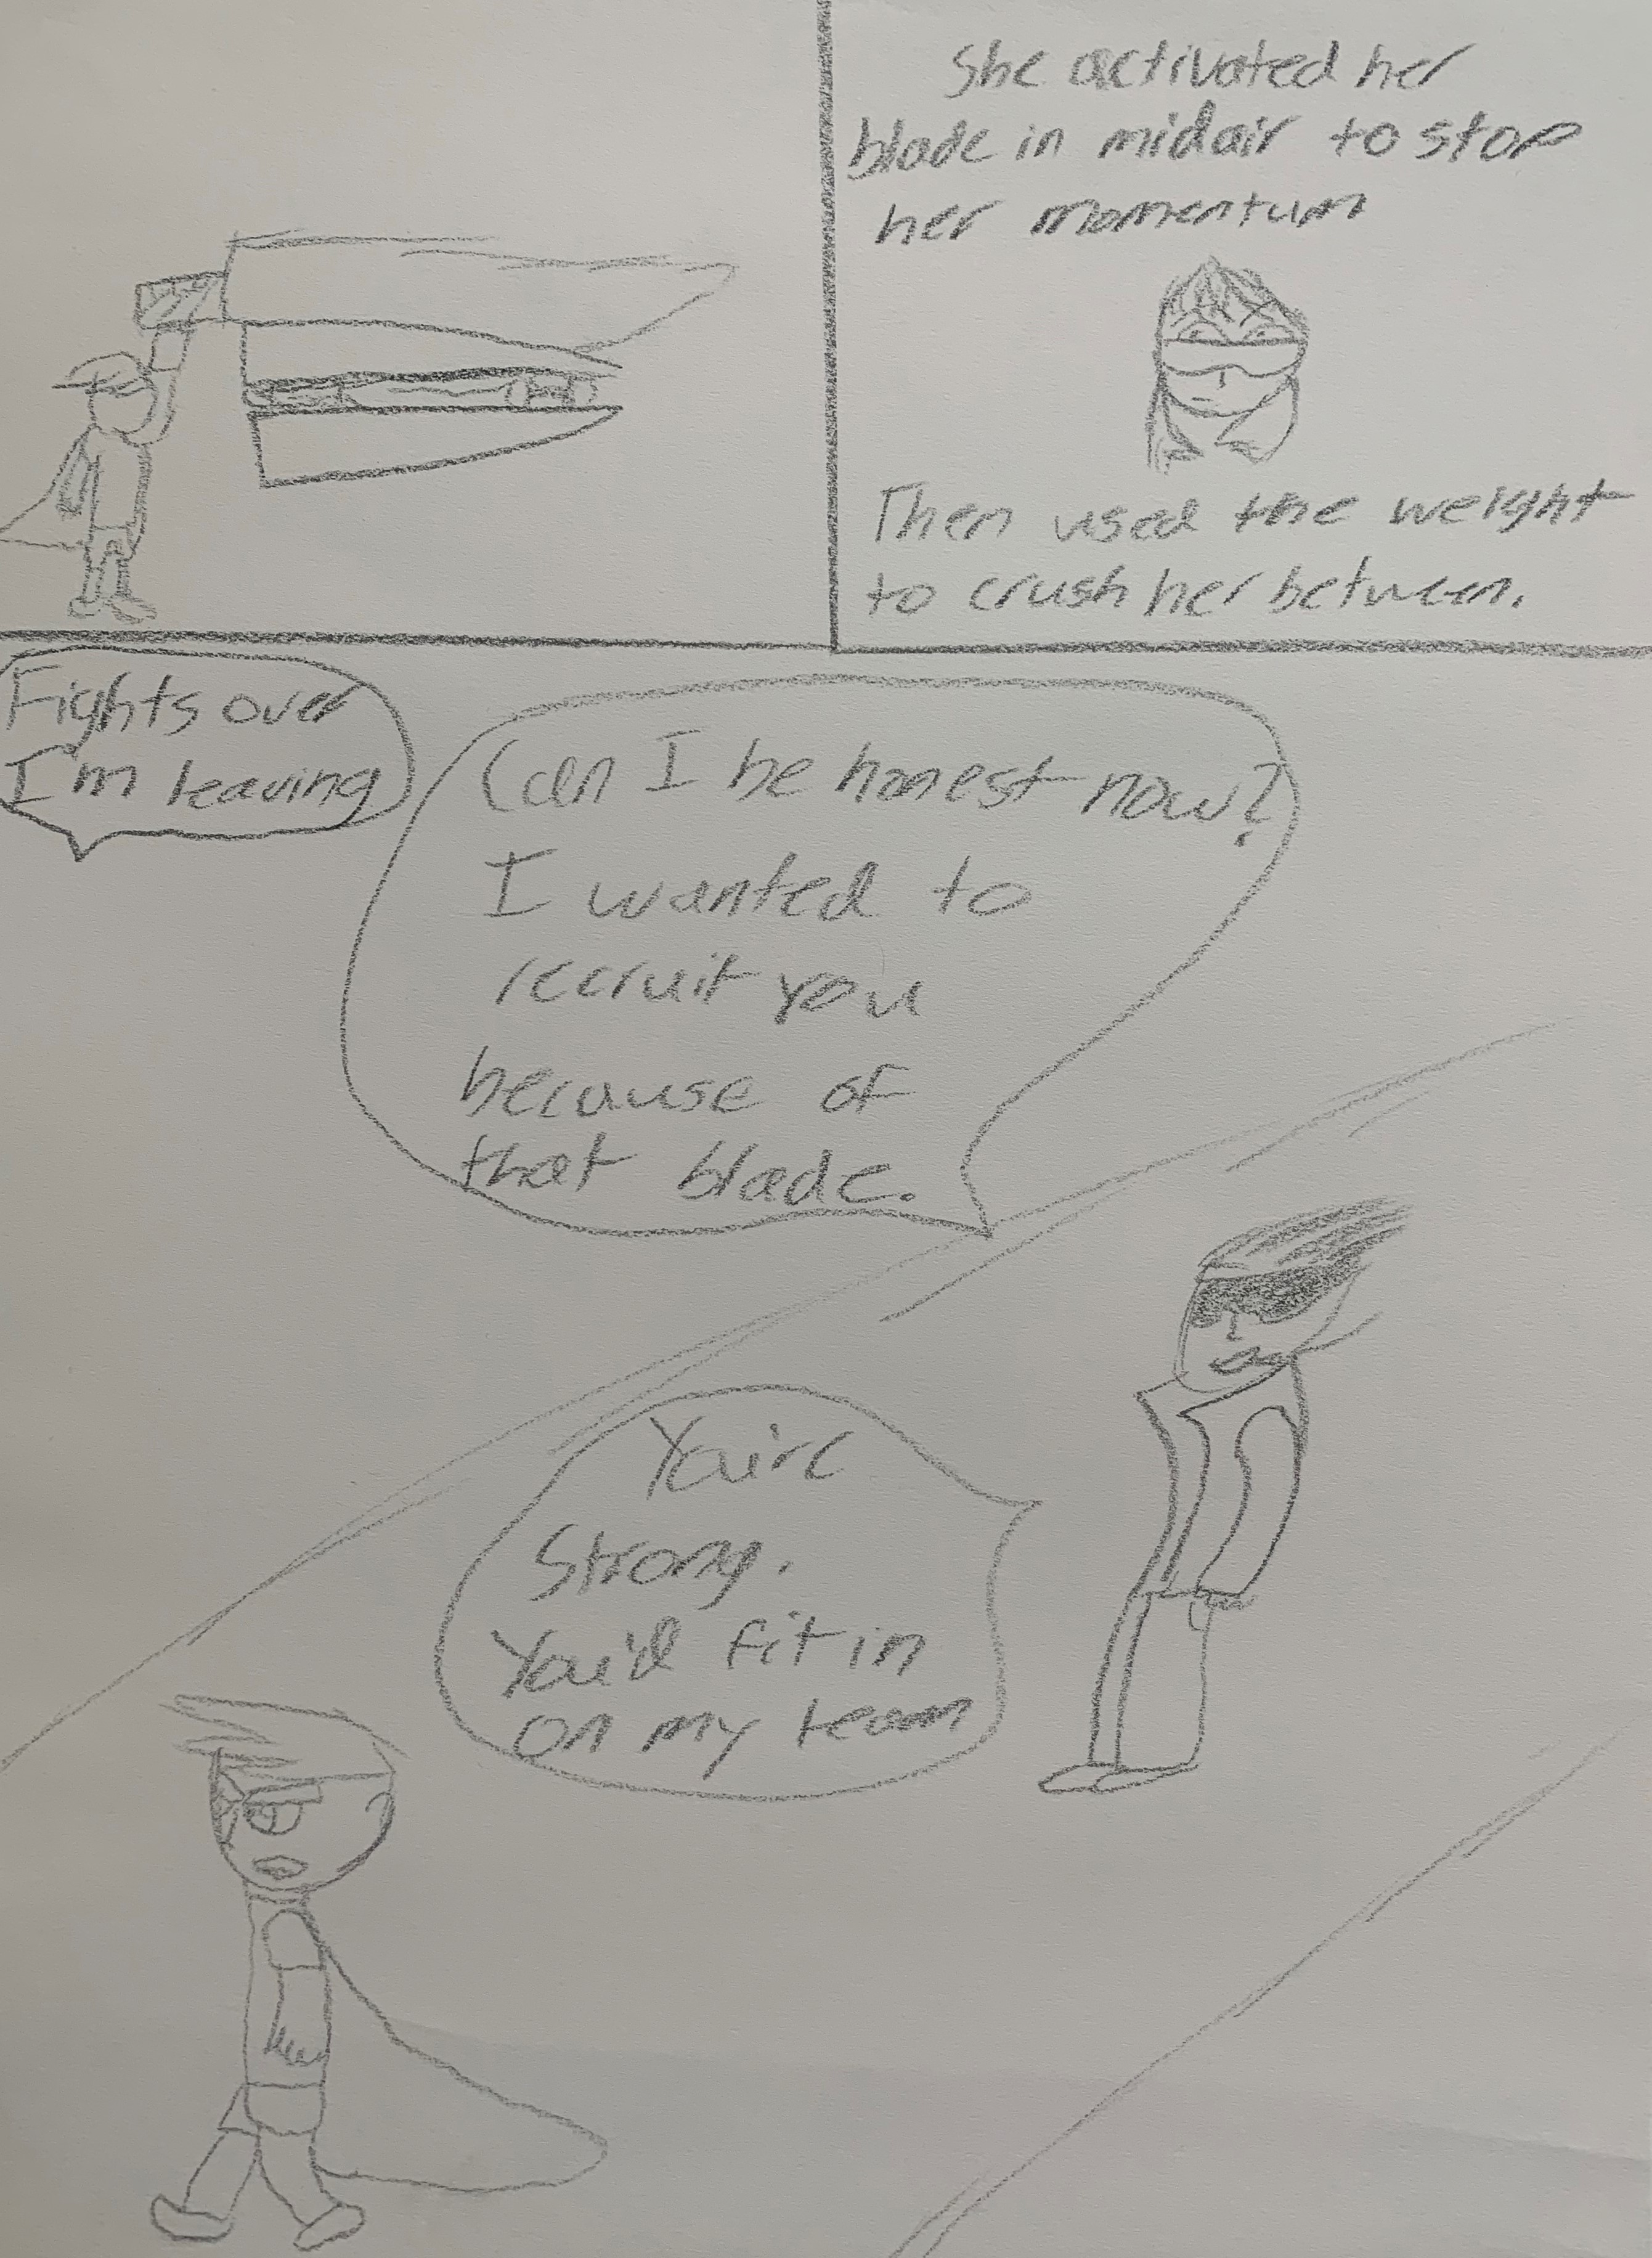 She activated her
blade in midair to stop
her momentum
Then used the weight
to crush her between.
Fights over
I'm leaving
Can I be honest now?
I wanted to
recruit you
because of
that blade.
You're
Strong.
You'd fit in
on my team